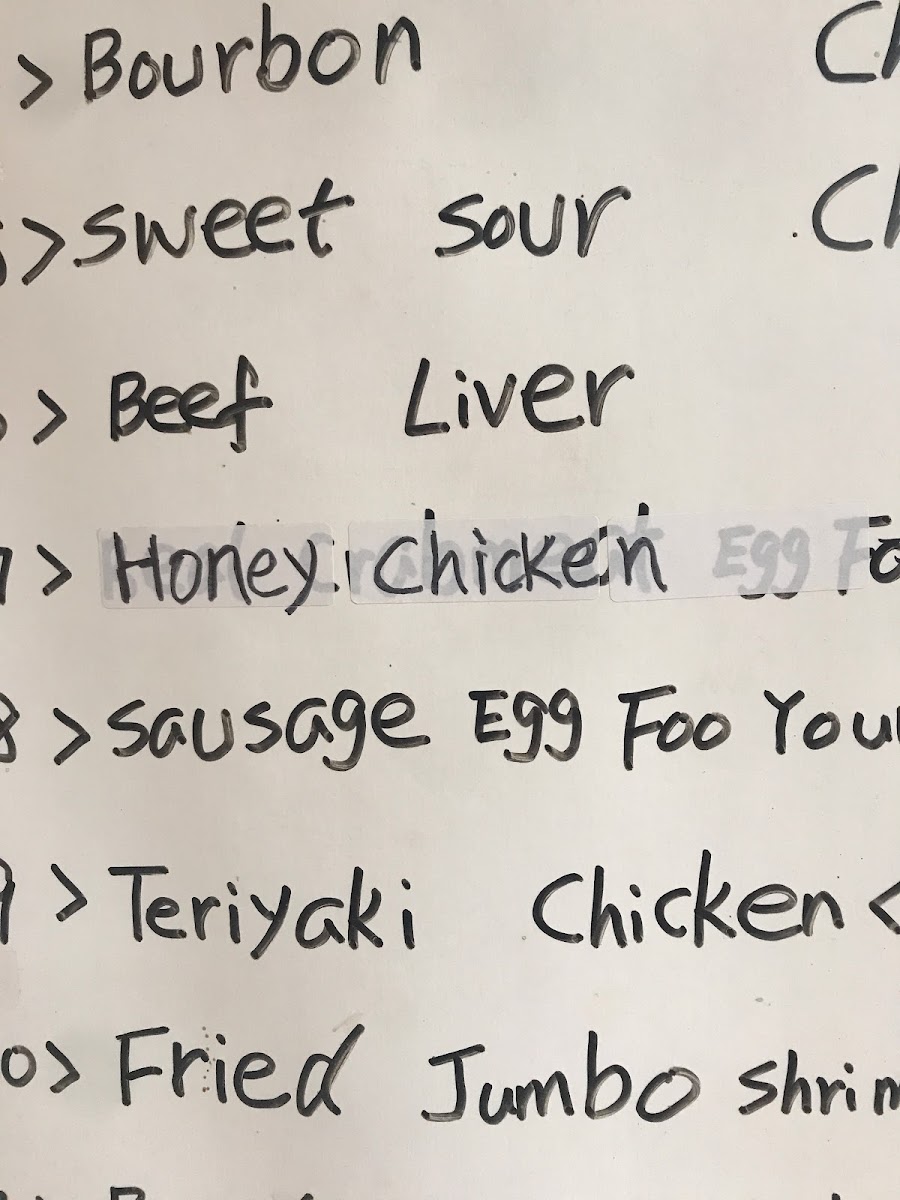 > Bourbon
> Sweet Sour
> Beef Liver
> Honey Chicken Egg Fo
8 > Sausage Egg Foo You
9 > Teriyaki Chicken <
0> Fried Jumbo Shrim